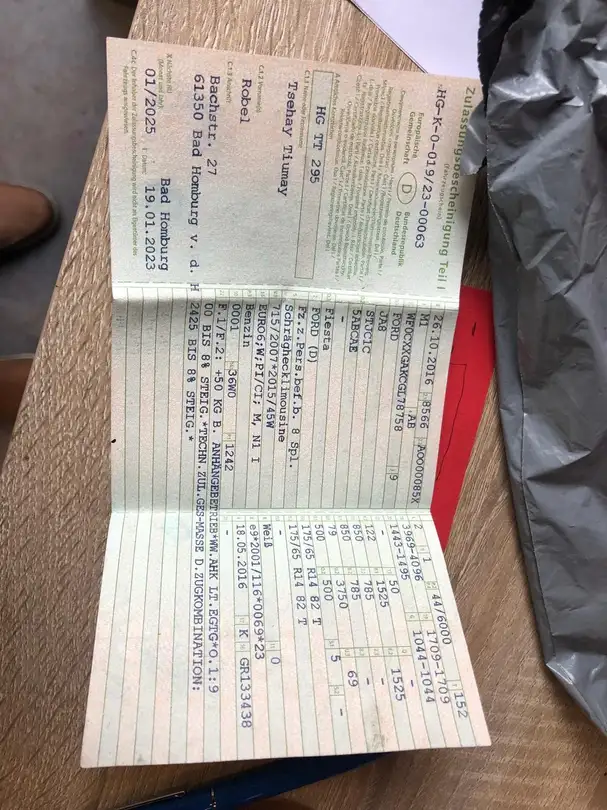 Zulassungsbescheinigung Teil I
(Fahrzeugschein)
HG-K-0-019/23-00063
Europäische
Gemeinschaft
D
Bundesrepublik
Deutschland
HG TT 295
Tsehay Tiumay
Robel
Bachstr. 27
61350 Bad Homburg v. d. H
01/2025
Bad Homburg
19.01.2023
26.10.2016 8566 A0000085X
M1 AB
WF0CXXGAKCGL78758 9
FORD
JA8
STJC1C
5ABCAE
-
Fiesta
FORD (D)
Fz.z.Pers.bef.b. 8 Spl.
Schräghecklimousine
715/2007*2015/45W
EURO6;W;PI/CI; M, N1 I
Benzin
0001 36W0 1242
F.1/F.2: +50 KG B. ANHÄNGEBETRIEB*WW.AHK LT.EGTG*O.1:9
00 BIS 8% STEIG.*TECHN.ZUL.GES-MASSE D.ZUGKOMBINATION:
2425 BIS 8% STEIG.*
2 1 44/6000 152
3969-4096 1709-1709
1443-1495 1044-1044
- 50
- 1525 1525
122 785 -
850 785 69
850 3750 -
79 500 5 -
500
175/65 R14 82 T
175/65 R14 82 T
-
-
Weiß 0
e9*2001/116*0069*23
18.05.2016 K GR133438
-